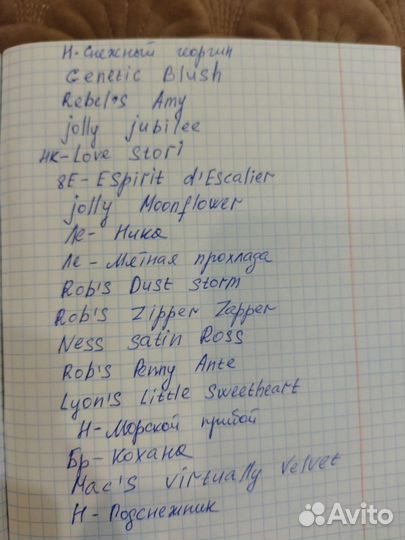 Н-Снежный георгин
Genetic Blush
Rebel's Amy
jolly jubilee
НК-Love Stori
8E-ESpirit d'Escalier
jolly Moonflower
Ле- Ника
Ле- Мятная прохлада
Rob's Dust Storm
Rob's Zipper Zapper
Ness Satin Ross
Rob's Penny Ante
Lyon's Little Sweetheart
Н-Морской прибой
Бр-Кохана
Mac's Virtually Velvet
Н-Подснежник
Avito